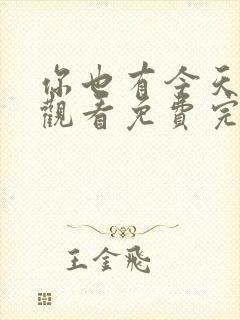 你也有今天
觀看免費完
王金飛